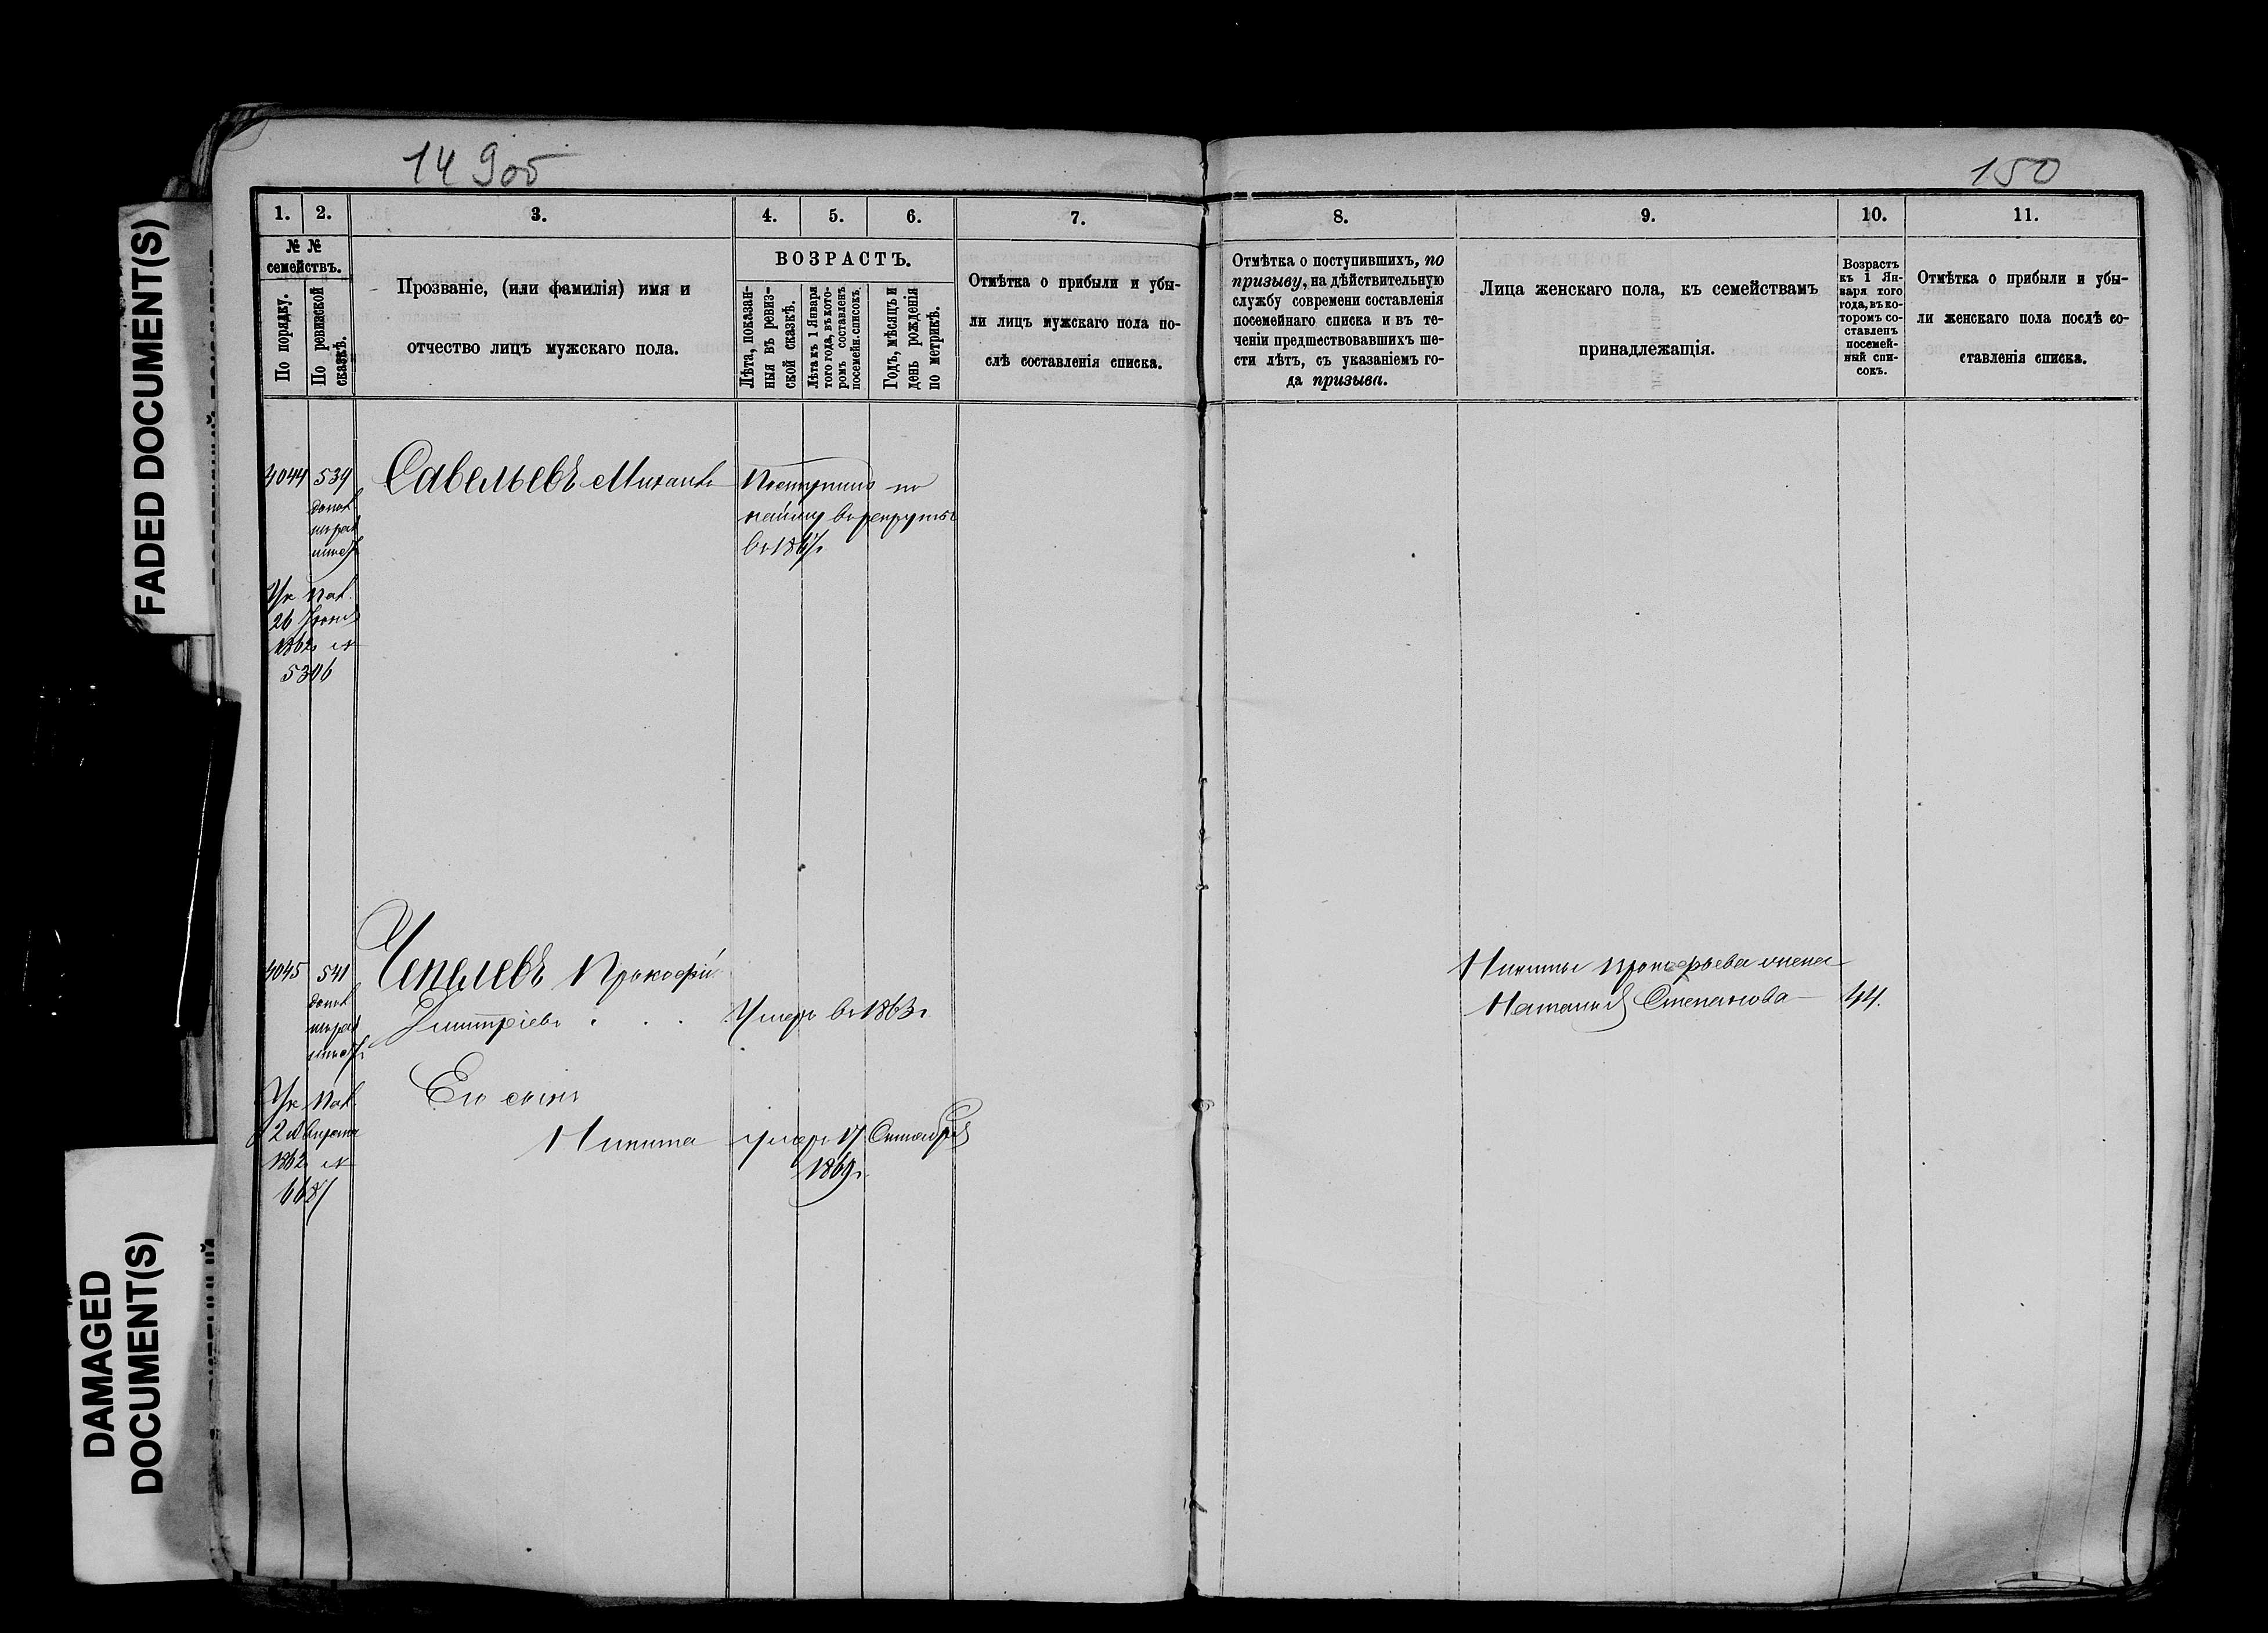 149об
150
FADED DOCUMENT(S)
DAMAGED
DOCUMENT(S)
1. 2. 3. 4. 5. 6. 7.
№ №
семействъ.
По порядку.
По ревизской
сказкѣ.
Прозваніе, (или фамилія) имя и
отчество лицъ мужскаго пола.
ВОЗРАСТЪ.
Лѣта, показан-
ныя въ ревиз-
ской сказкѣ.
Лѣта къ 1 Января
того года, въ кото-
ромъ составленъ
посемейн. списокъ.
Годъ, мѣсяцъ и
день рожденія
по метрикѣ.
Отмѣтка о прибыли и убы-
ли лицъ мужскаго пола по-
слѣ составленія списка.
8. 9. 10. 11.
Отмѣтка о поступившихъ, по
призыву, на дѣйствительную
службу современи составленія
посемейнаго списка и въ те-
ченіи предшествовавшихъ ше-
сти лѣтъ, съ указаніемъ го-
да призыва.
Лица женскаго пола, къ семействамъ
принадлежащія.
Возрастъ
къ 1 Ян-
варя того
года, въ ко-
торомъ со-
ставленъ
посемей-
ный спи-
сокъ.
Отмѣтка о прибыли и убы-
ли женскаго пола послѣ со-
ставленія списка.
4044 539 Савельевъ Михаилъ Поступилъ по
найму въ рекруты
въ 1867г
Ук Пал.
26 Іюня
1862 №
5306
4045 541 Чепелевъ Прокофій
Дмитріевъ . . . Умеръ въ 1863г
Его сынъ
Никита умеръ 17 Октября
1869г.
Ук Пал.
2 Августа
1862 №
6687
Никиты Прокофьева жена
Наталія Степанова 44.